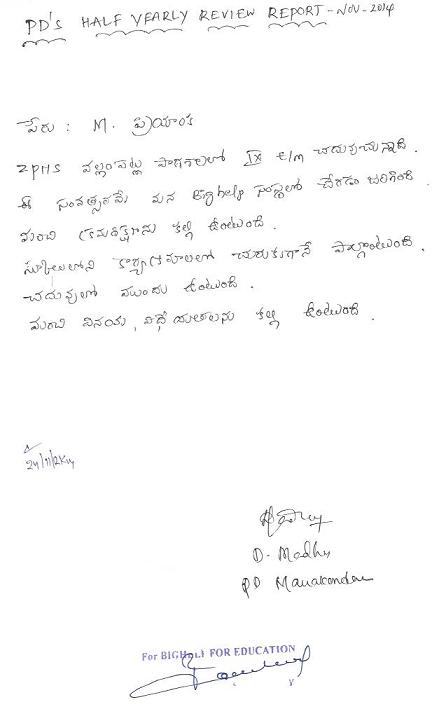 PD'S HALF YEARLY REVIEW REPORT - NOV - 2014
పేరు : M. ప్రియాంక
ZPHS వల్లంపట్ల పాఠశాలలో IX E/M చదువుచున్నాది.
ఈ సంవత్సరమే మన Bighelp సంస్థలో చేరడం జరిగింది
మంచి క్రమశిక్షణను కల్గి ఉంటుంది.
స్కూలులోని కార్యక్రమాలలో చురుకుగానే పాల్గొంటుంది.
చదువులో ముందు ఉంటుంది.
మంచి వినయ, విధేయతలను కల్గి ఉంటుంది.
24/11/2K14
D. Madhu
PD Manakondur
For BIGHELP FOR EDUCATION